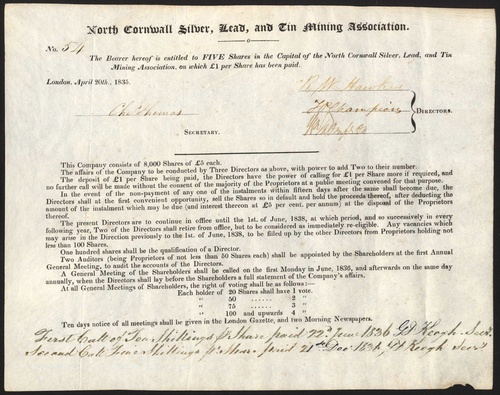 North Cornwall Silver, Lead, and Tin Mining Association.
No. 54
The Bearer hereof is entitled to FIVE Shares in the Capital of the North Cornwall Silver, Lead, and Tin
Mining Association, on which £1 per Share has been paid.
London, April 20th., 1835.
Chas Thomas
SECRETARY.
DIRECTORS.
This Company consists of 8,000 Shares of £5 each.
The affairs of the Company to be conducted by Three Directors as above, with power to add Two to their number.
The deposit of £1 per Share being paid, the Directors have the power of calling for £1 per Share more if required, and
no further call will be made without the consent of the majority of the Proprietors at a public meeting convened for that purpose.
In the event of the non-payment of any one of the instalments within fifteen days after the same shall become due, the
Directors shall at the first convenient opportunity, sell the Shares so in default and hold the proceeds thereof, after deducting the
amount of the instalment which may be due (and interest thereon at £5 per cent. per annum) at the disposal of the Proprietors
thereof.
The present Directors are to continue in office until the 1st. of June, 1838, at which period, and so successively in every
following year, Two of the Directors shall retire from office, but to be considered as immediately re-eligible. Any vacancies which
may arise in the Direction previously to the 1st. of June, 1838, to be filled up by the other Directors from Proprietors holding not
less than 100 Shares.
One hundred shares shall be the qualification of a Director.
Two Auditors (being Proprietors of not less than 50 Shares each) shall be appointed by the Shareholders at the first Annual
General Meeting, to audit the accounts of the Directors.
A General Meeting of the Shareholders shall be called on the first Monday in June, 1836, and afterwards on the same day
annually, when the Directors shall lay before the Shareholders a full statement of the Company's affairs.
At all General Meetings of Shareholders, the right of voting shall be as follows:—
Each holder of 20 Shares shall have 1 vote.
„ 50 ...... 2 „
„ 75 ...... 3 „
„ 100 and upwards 4 „
Ten days notice of all meetings shall be given in the London Gazette, and two Morning Newspapers.
First Call of Ten Shillings pr Share paid 22d June 1836 GD Keogh Secy.
Second Call Five Shillings pr Share paid 21st Dec 1836, GD Keogh Secy